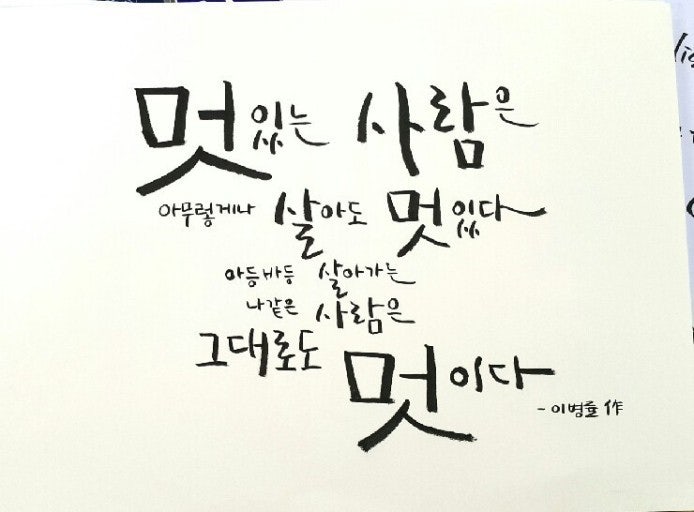 멋있는 사람은
아무렇게나 살아도 멋있다
아등바등 살아가는
나같은 사람은
그대로도 멋이다
- 이병률 作